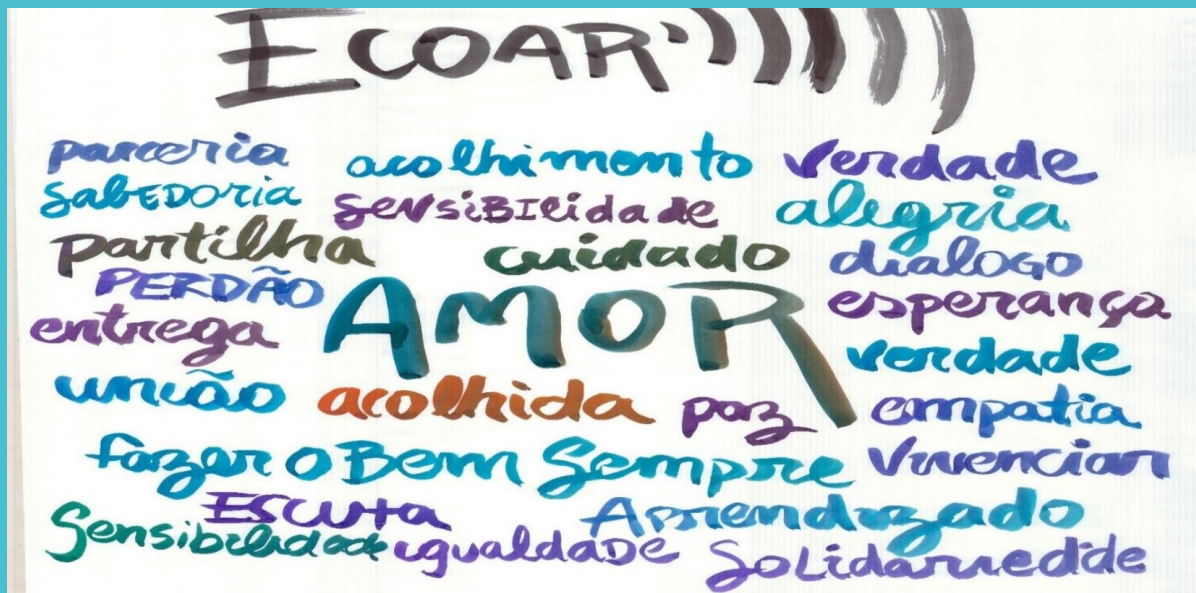 ECOAR
parceria acolhimento verdade
sabEDoria SENSiBILidade alegria
partilha cuidado dialogo
PERDÃO AMOR esperança
entrega verdade
união acolhida paz empatia
fazer o Bem Sempre Vivenciar
ESCUTA Aprendizado
Sensibilidade igualdade Solidariedade